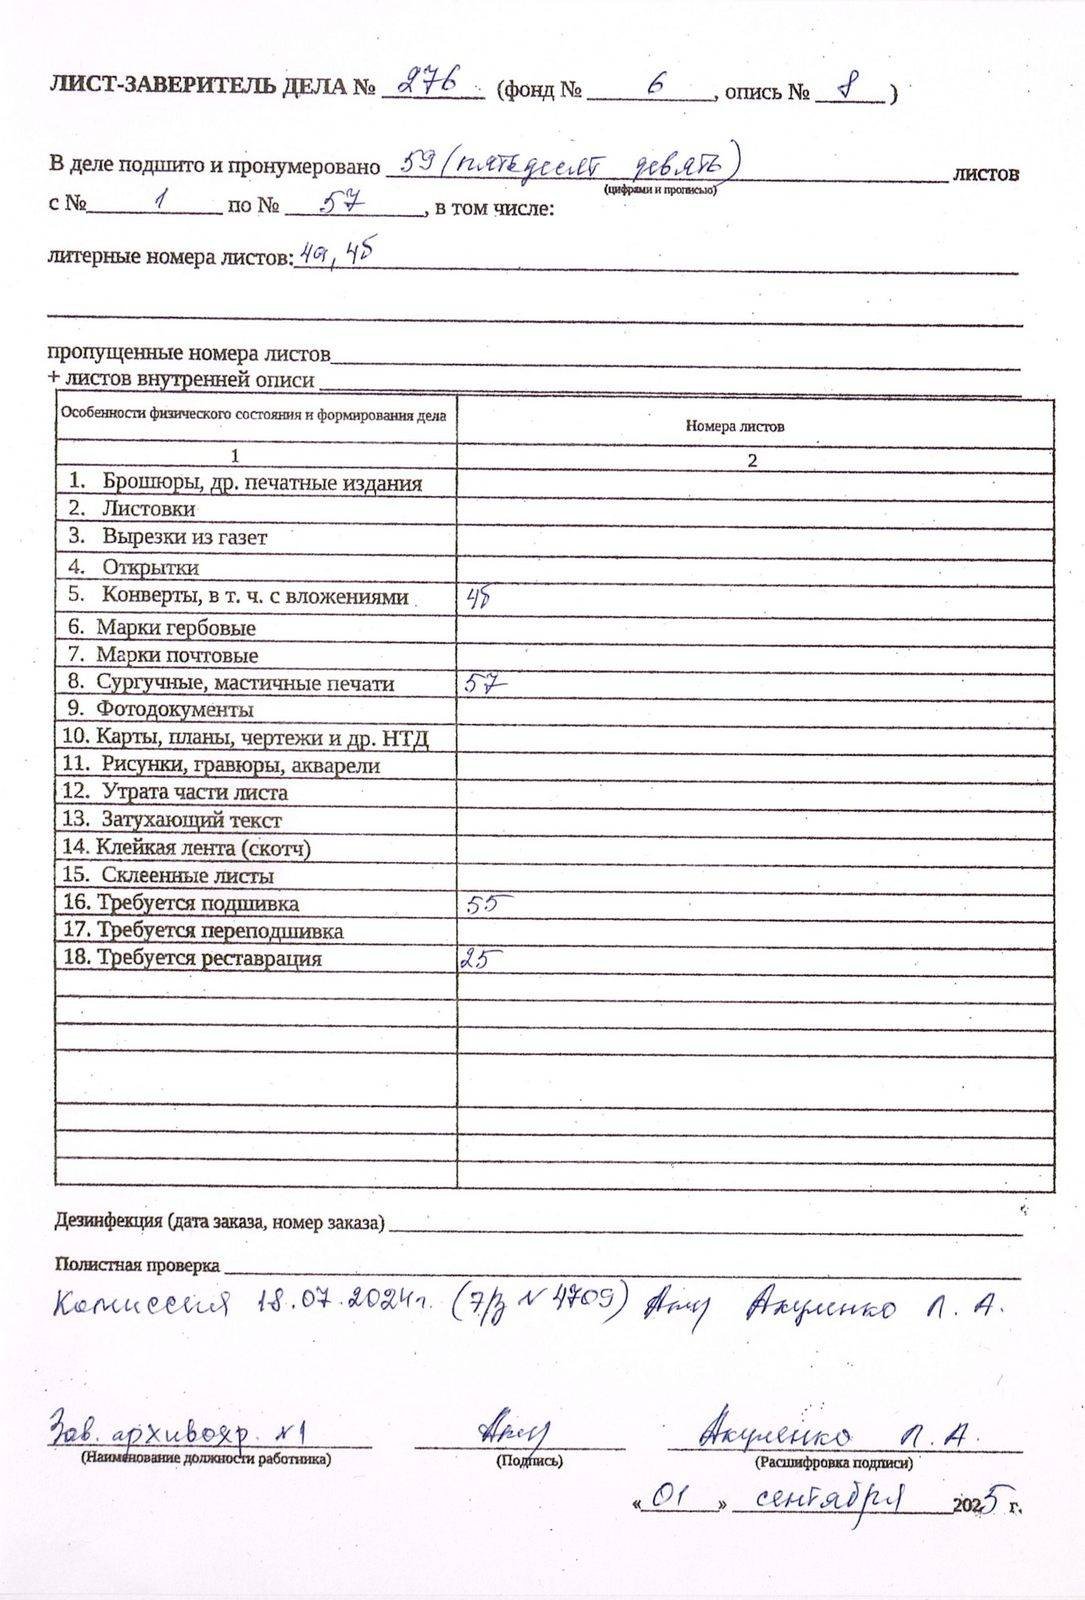 ЛИСТ-ЗАВЕРИТЕЛЬ ДЕЛА № 276 (фонд № 6, опись № 8)
В деле подшито и пронумеровано 59 (пятьдесят девять) листов
(цифрами и прописью)
с № 1 по № 57, в том числе:
литерные номера листов: 4а, 4б
пропущенные номера листов
+ листов внутренней описи
Особенности физического состояния и формирования дела Номера листов
1 2
1. Брошюры, др. печатные издания
2. Листовки
3. Вырезки из газет
4. Открытки
5. Конверты, в т. ч. с вложениями 4б
6. Марки гербовые
7. Марки почтовые
8. Сургучные, мастичные печати 57
9. Фотодокументы
10. Карты, планы, чертежи и др. НТД
11. Рисунки, гравюры, акварели
12. Утрата части листа
13. Затухающий текст
14. Клейкая лента (скотч)
15. Склеенные листы
16. Требуется подшивка 55
17. Требуется переподшивка
18. Требуется реставрация 25
Дезинфекция (дата заказа, номер заказа)
Полистная проверка
Комиссия 18.07.2024г. ( № 4709) Акуленко Л. А.
Зав. архивохр. №1 Акуленко Л. А.
(Наименование должности работника) (Подпись) (Расшифровка подписи)
« 01 » сентября 2025 г.